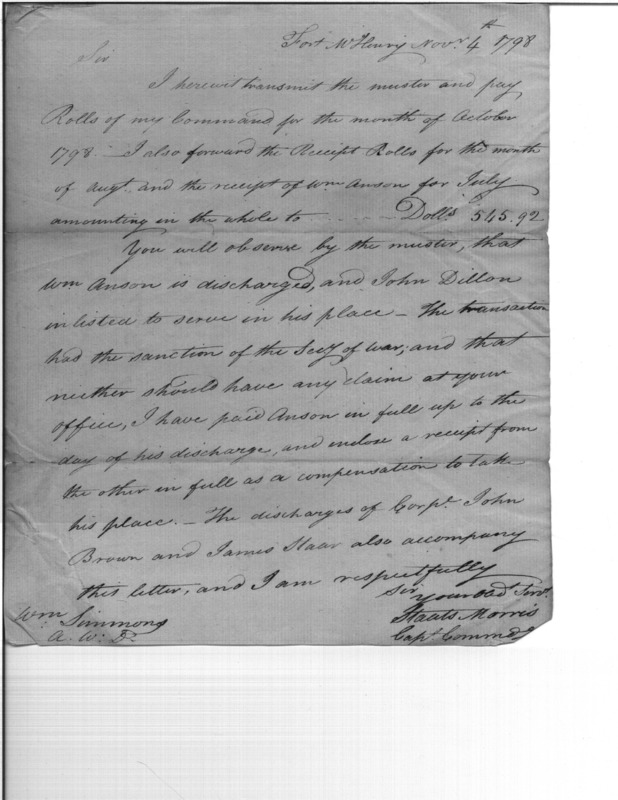 Fort McHenry Novr. 4th 1798
Sir
I herewit transmit the muster and pay
Rolls of my Command for the month of October
1798. — I also forward the Receipt Rolls for the month
of Augt. and the receipt of Wm Anson for July
amounting in the whole to - - - - - - Dolls 545.92
You will observe by the muster, that
Wm Anson is discharged, and John Dillon
inlisted to serve in his place — The transaction
had the sanction of the Secy of War; and that
neither should have any claim at your
office, I have paid Anson in full up to the
day of his discharge, and inclose a receipt from
the other in full as a compensation to take
his place. — The discharges of Corpl. John
Brown and James Haar also accompany
this letter, and I am respectfully
Sir,
your obd Servt.
Staats Morris
Capt. Commdg
Wm Simmons
A. W. D.